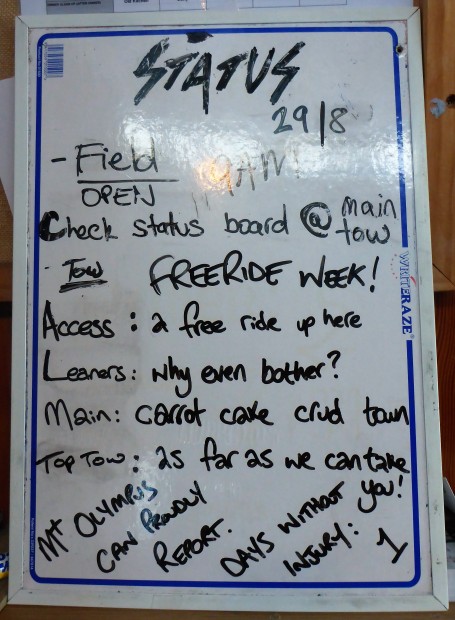 STATUS
29/8
- Field
OPEN
Check status board @ main tow
- Tow FREERIDE WEEK!
Access: a free ride up here
Leaners: why even bother?
Main: carrot cake crud town
Top Tow: as far as we can take you!
Mt OLYMPUS
CAN PROUDLY
REPORT.
DAYS WITHOUT
INJURY: 1
WRITERAZE